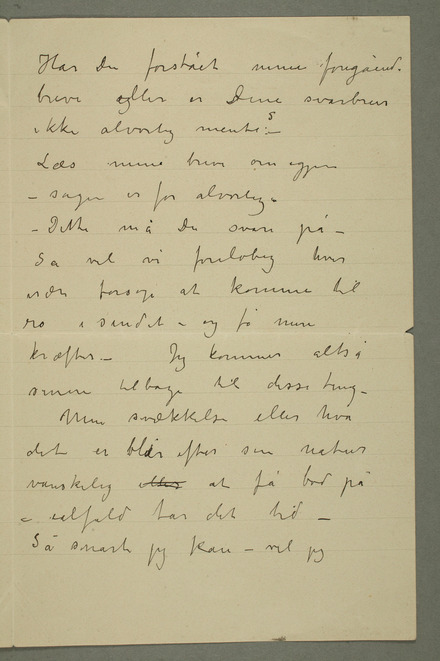 Har Du forstået mine foregåend.
breve eller er Dine svarbrev
ikke alvorlig mente? –
Læs mine breve om igjen
– sagen er for alvorlig.
– Dette må Du svare på –
Så vil vi foreløbig hver
især forsøge at komme til
ro i sindet – og få mere
kræfter. – Jeg kommer altså
senere tilbage til disse ting –
Min svækkelse eller hva
det er blir efter sin natur
vanskelig at få bod på
– ialfald tar det tid –
Så snart jeg kan – vil jeg